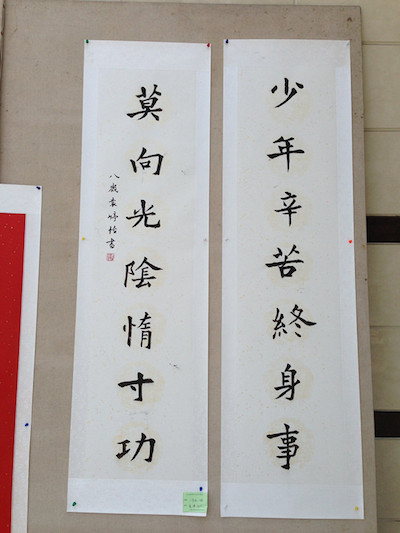 少年辛苦終身事
莫向光陰惰寸功
八歲袁婷怡書